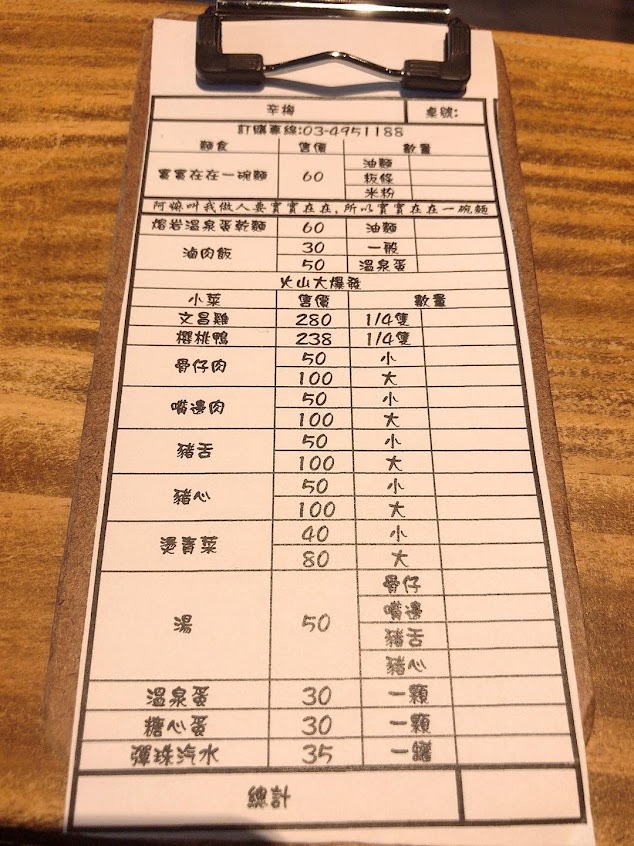 辛梅 桌號:
訂購專線:03-4951188
麵食 售價 數量
實實在在一碗麵 60 油麵
粄條
米粉
阿嬤叫我做人要實實在在,所以實實在在一碗麵
熔岩溫泉蛋乾麵 60 油麵
滷肉飯 30 一般
50 溫泉蛋
火山大爆發
小菜 售價 數量
文昌雞 280 1/4隻
櫻桃鴨 238 1/4隻
骨仔肉 50 小
100 大
嘴邊肉 50 小
100 大
豬舌 50 小
100 大
豬心 50 小
100 大
燙青菜 40 小
80 大
湯 50 骨仔
嘴邊
豬舌
豬心
溫泉蛋 30 一顆
糖心蛋 30 一顆
彈珠汽水 35 一罐
總計